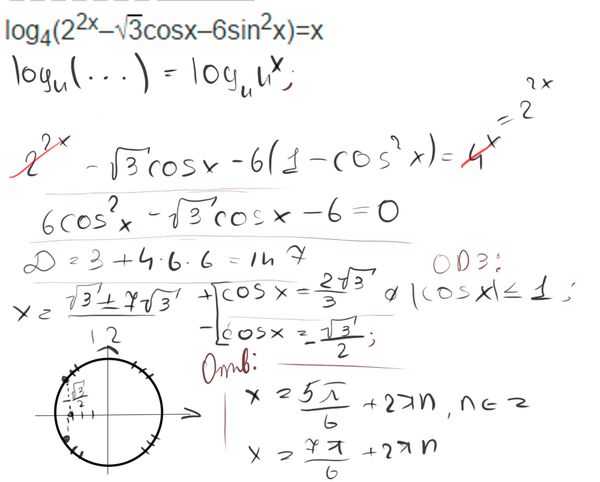 log₄(2²ˣ–√3cosx–6sin²x)=x
log₄(...) = log₄4ˣ;
2²ˣ - √3 cosx - 6(1 - cos²x) = 4ˣ = 2²ˣ
6cos²x - √3 cosx - 6 = 0
D = 3 + 4·6·6 = 147
ОДЗ:
x = (√3 ± 7√3)/12 + [cosx = 2√3/3 ∅ |cosx| ≤ 1;
- [cosx = -√3/2;
Отв:
-√3/2
x = 5π/6 + 2πn, n ∈ Z
x = 7π/6 + 2πn